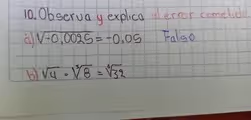 10. Observa y explica el error cometido
a) √-0.0025 = -0.05 Falso
b) √4 · ∛8 = ⁶√32